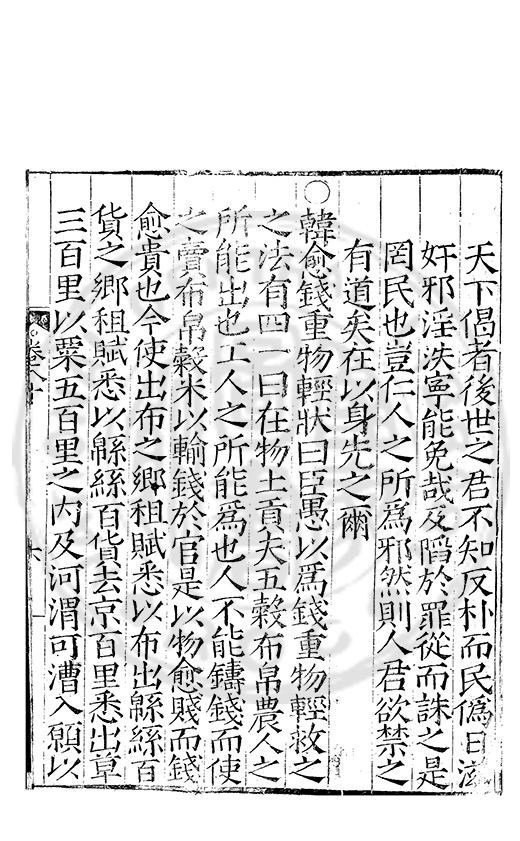 天下倡者後世之君不知反朴而民僞日滋
奸邪淫泆寧能免哉及䧟於罪從而誅之是
罔民也豈仁人之所爲邪然則人君欲禁之
有道矣在以身先之爾
○韓愈錢重物輕狀曰臣愚以爲錢重物輕救之
之法有四一曰在物土貢夫五穀布帛農人之
所能出也工人之所能爲也人不能鑄錢而使
之賣布帛穀米以輸錢於官是以物愈賤而錢
愈貴也今使出布之鄉租賦悉以布出緜絲百
貨之鄉租賦悉以緜絲百貨去京百里悉出草
三百里以粟五百里之內及河渭可漕入願以